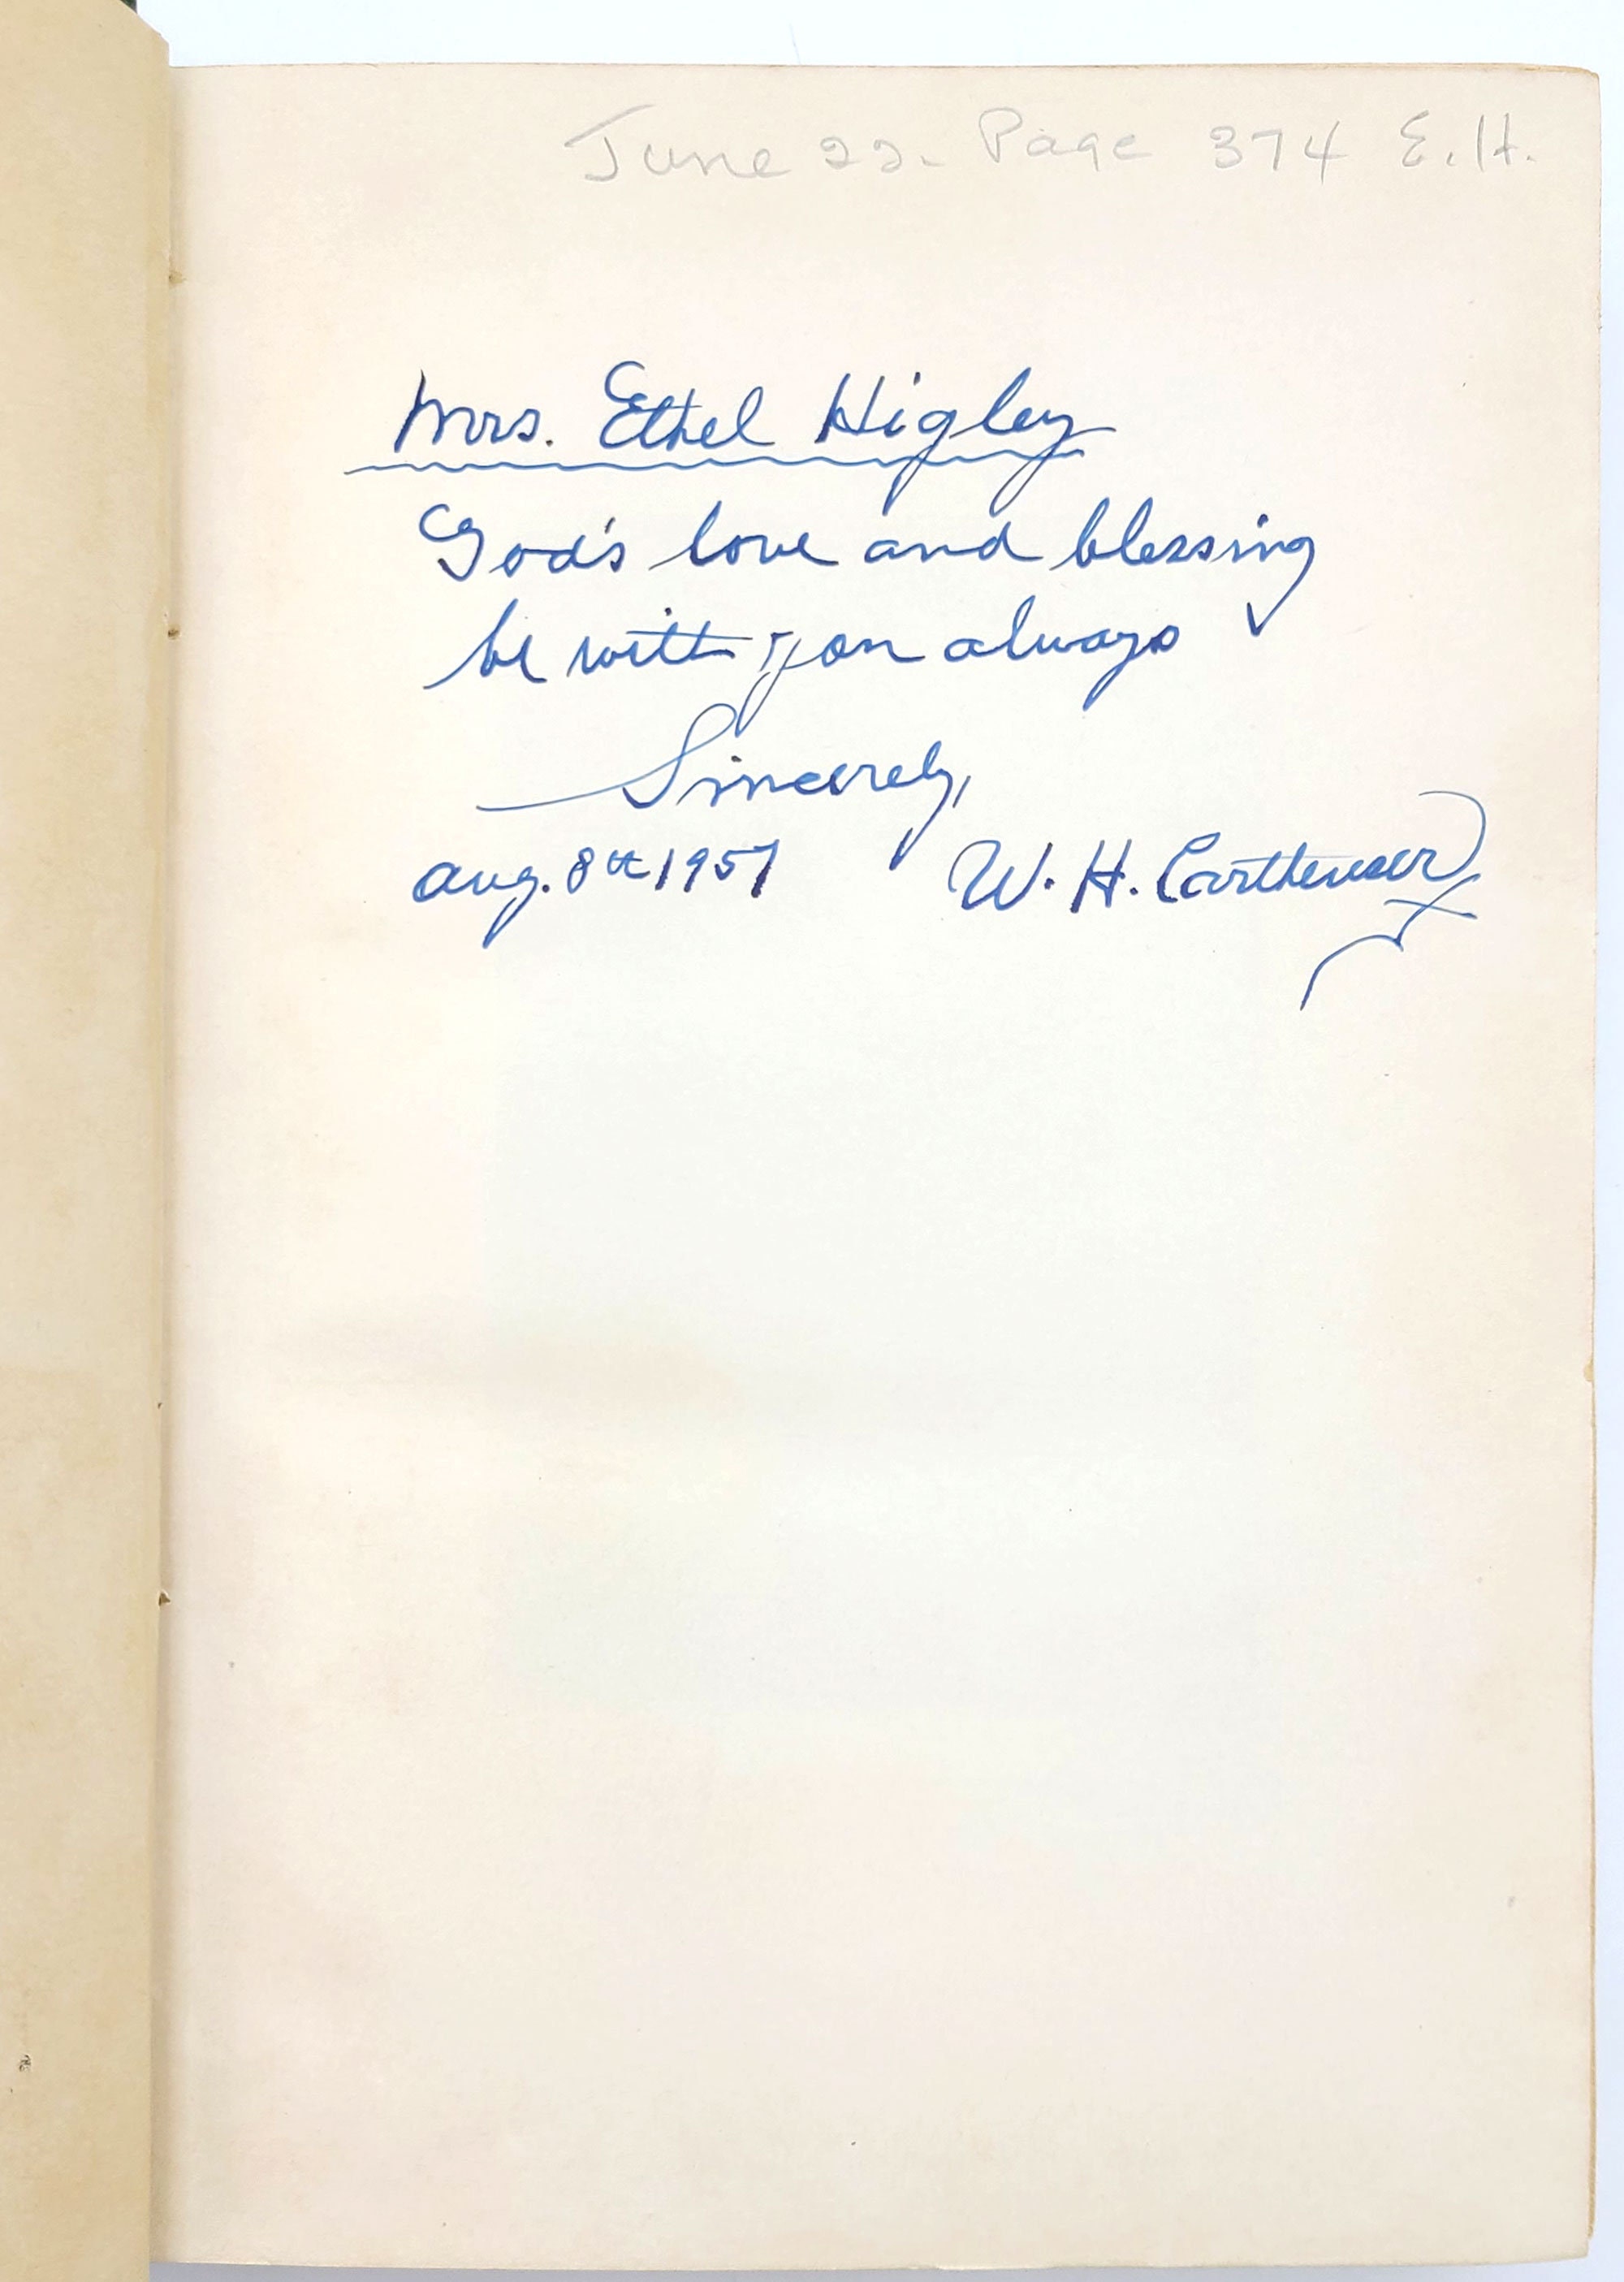 June 22. Page 374 E.H.
Mrs. Ethel Higley
God's love and blessing
be with you always
Sincerely,
Aug. 8th 1957 W. H.